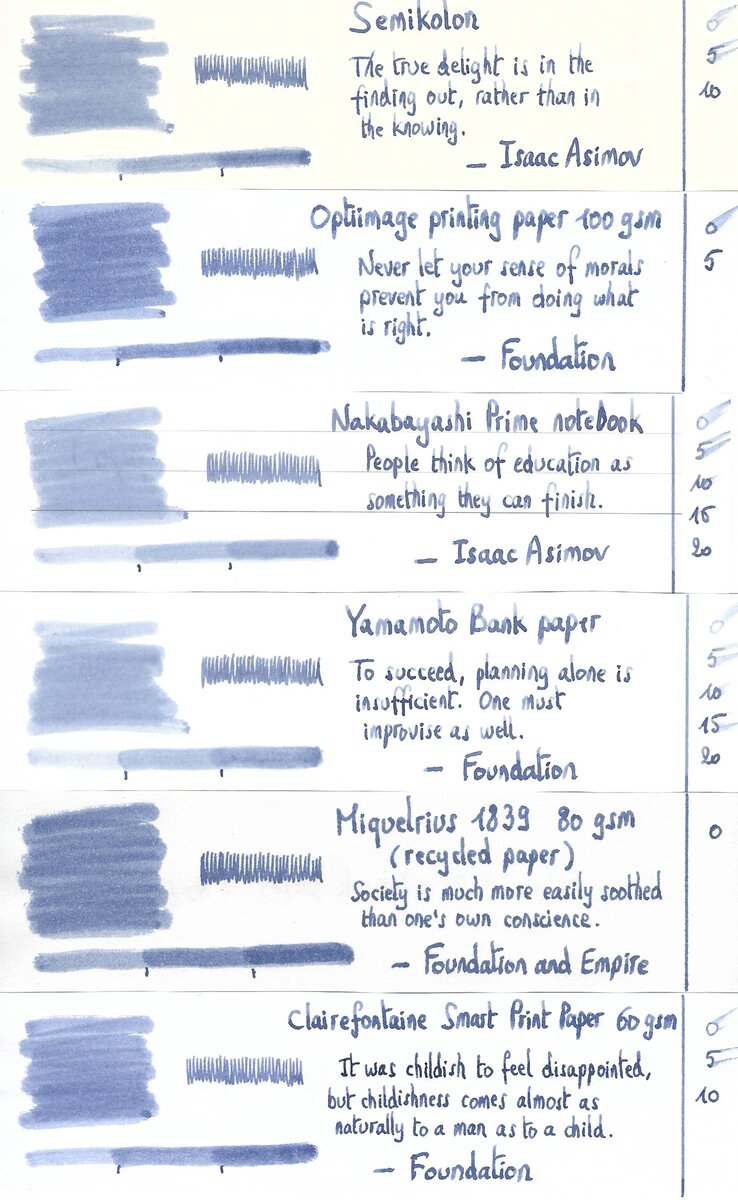 Semikolon
The true delight is in the
finding out, rather than in
the knowing.
— Isaac Asimov
0
5
10
Optiimage printing paper 100 gsm
Never let your sense of morals
prevent you from doing what
is right.
— Foundation
0
5
Nakabayashi Prime notebook
People think of education as
something they can finish.
— Isaac Asimov
0
5
10
15
20
Yamamoto Bank paper
To succeed, planning alone is
insufficient. One must
improvise as well.
— Foundation
0
5
10
15
20
Miquelrius 1839 80 gsm
(recycled paper)
Society is much more easily soothed
than one's own conscience.
— Foundation and Empire
0
Clairefontaine Smart Print Paper 60 gsm
It was childish to feel disappointed,
but childishness comes almost as
naturally to a man as to a child.
— Foundation
0
5
10